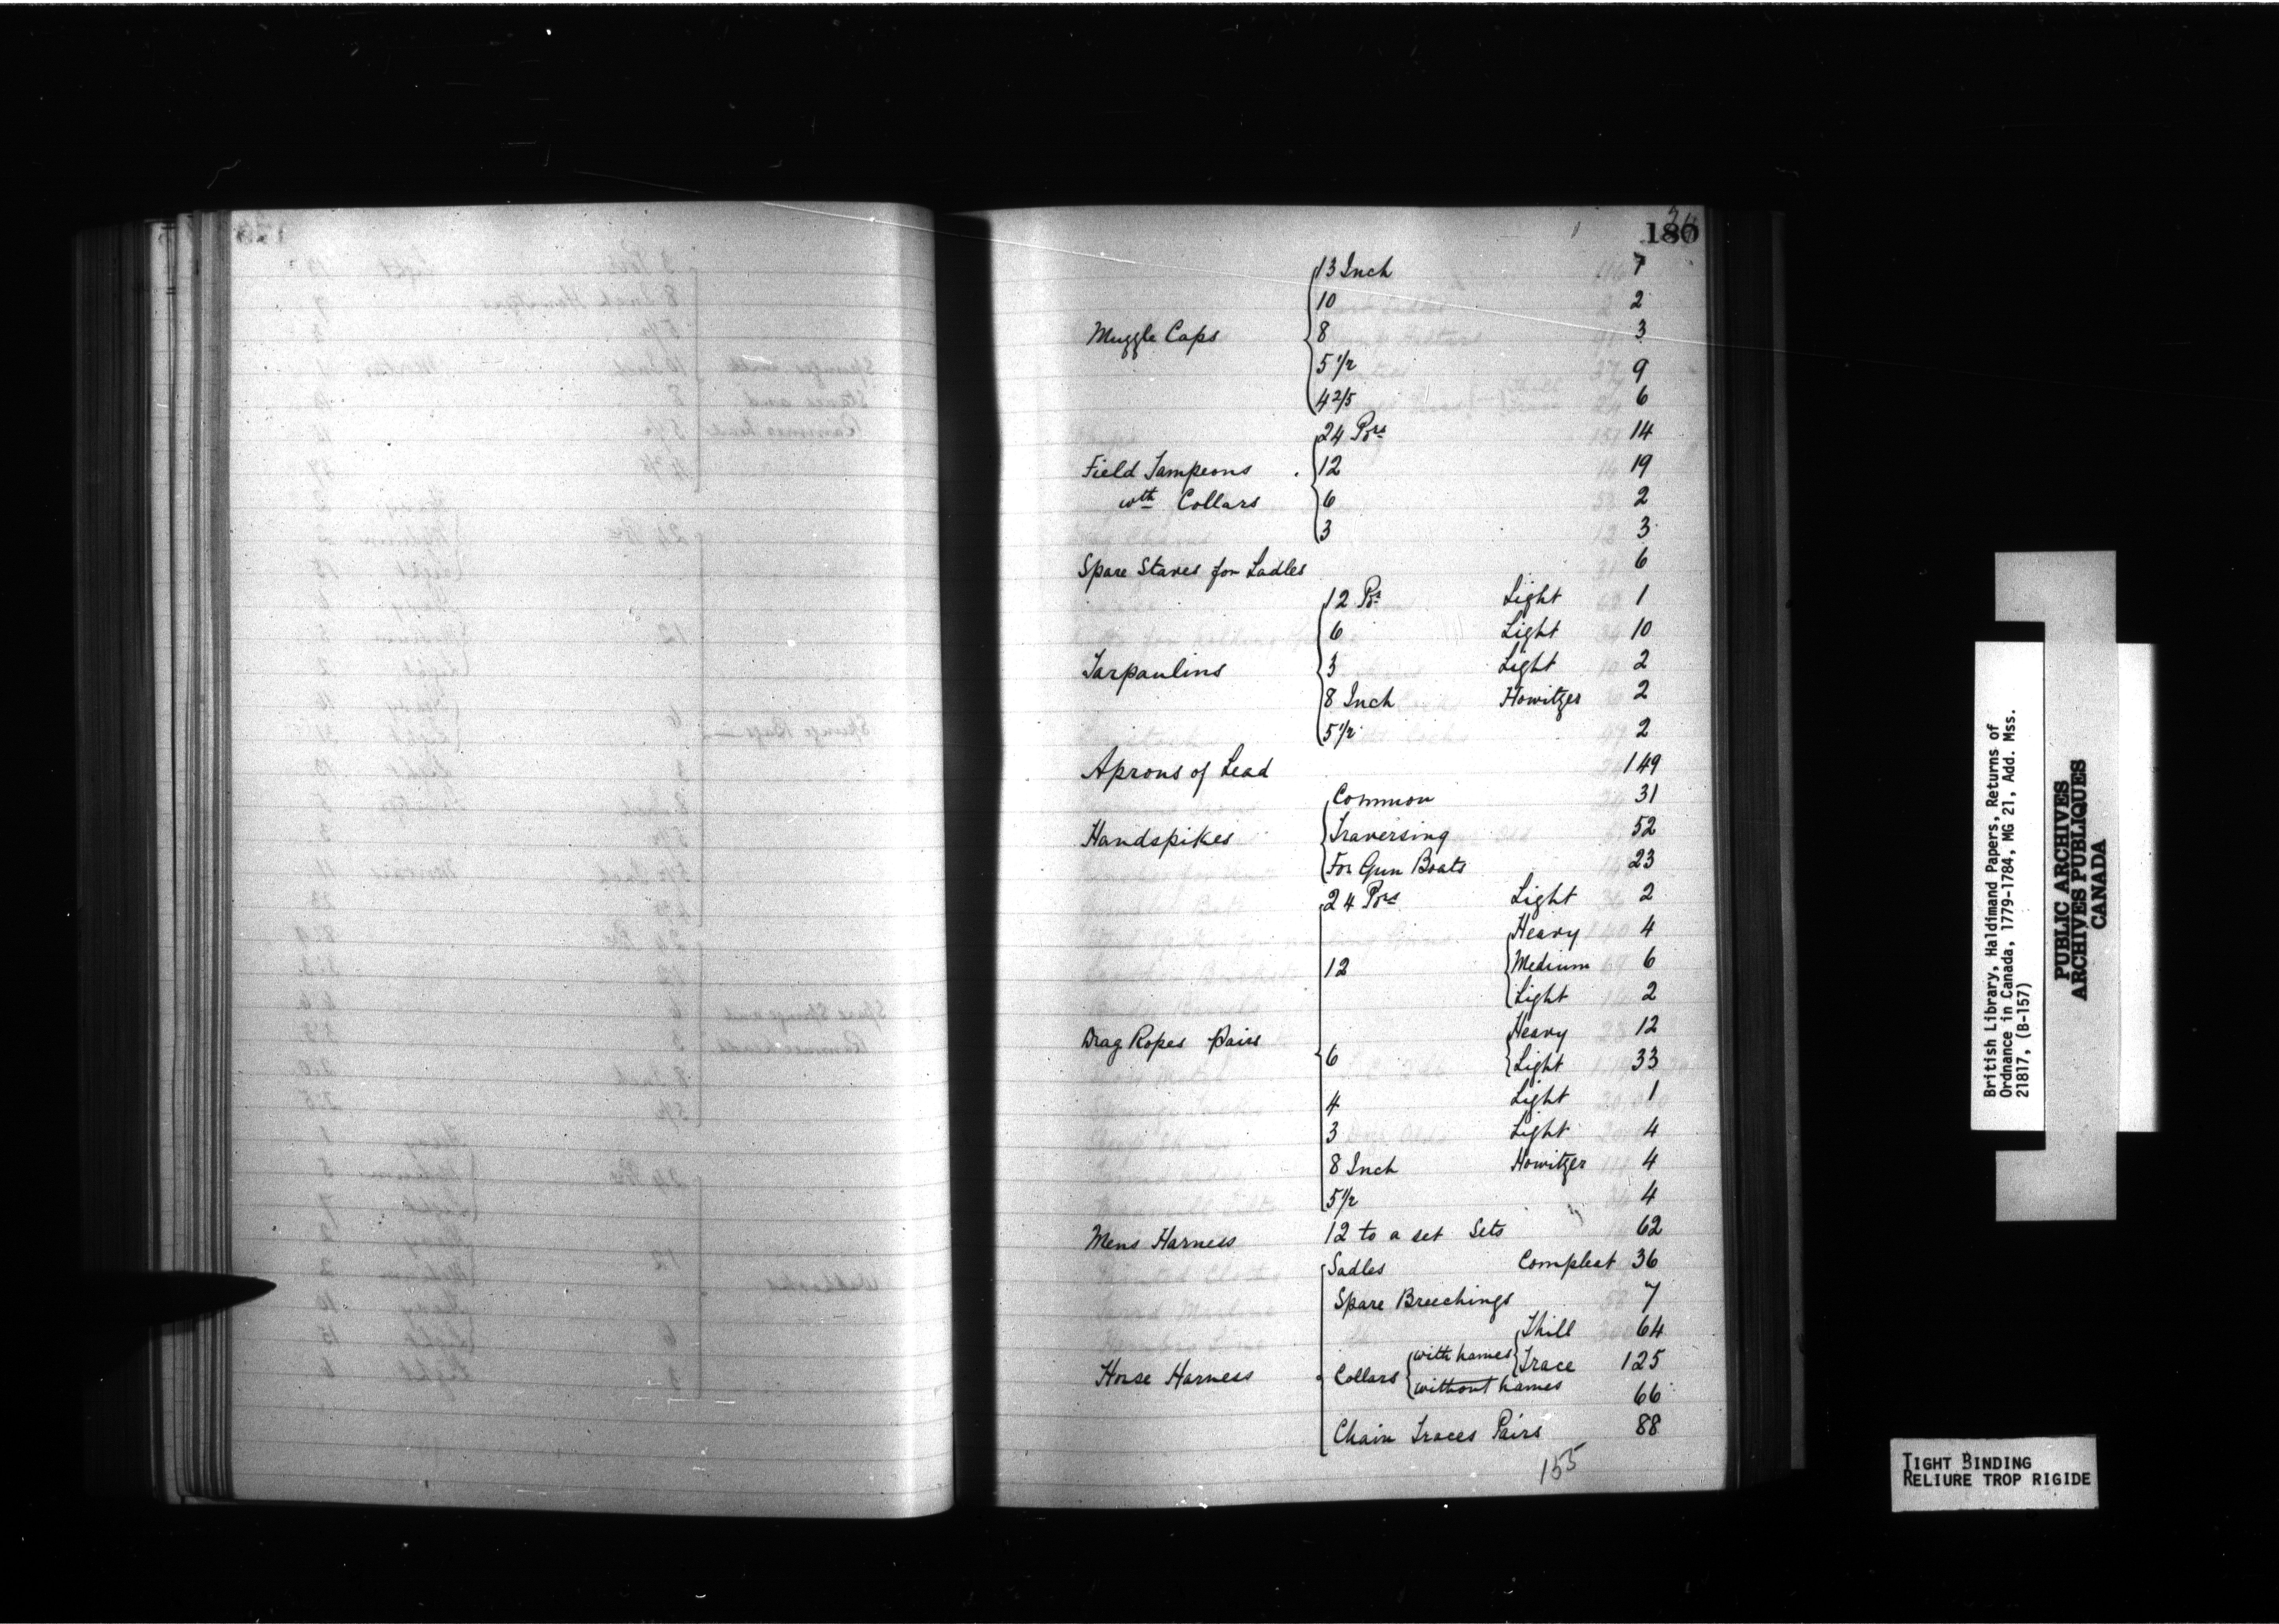 180
13 Inch 7
10 2
Muzzle Caps 8 3
5 1/2 9
4 2/5 6
24 Pdrs 14
Field Tampeons 12 19
wth Collars 6 2
3 3
Spare Staves for Ladles 6
12 Pdr Light 1
6 Light 10
Tarpaulins 3 Light 2
8 Inch Howitzer 2
5 1/2 2
Aprons of Lead 149
Common 31
Handspikes Traversing 52
For Gun Boats 23
24 Pdrs Light 2
Heavy 4
12 Medium 6
Light 2
Drag Ropes Pairs Heavy 12
6 Light 33
4 Light 1
3 Light 4
8 Inch Howitzer 4
5 1/2 4
Mens Harness 12 to a set Sets 62
Sadles Compleat 36
Spare Breechings 7
Thill 64
Horse Harness Collars with hames Trace 125
without hames 66
Chain Traces Pairs 88
155
British Library, Haldimand Papers, Returns of
Ordnance in Canada, 1779-1784, MG 21, Add. Mss.
21817, (B-157)
PUBLIC ARCHIVES
ARCHIVES PUBLIQUES
CANADA
TIGHT BINDING
RELIURE TROP RIGIDE